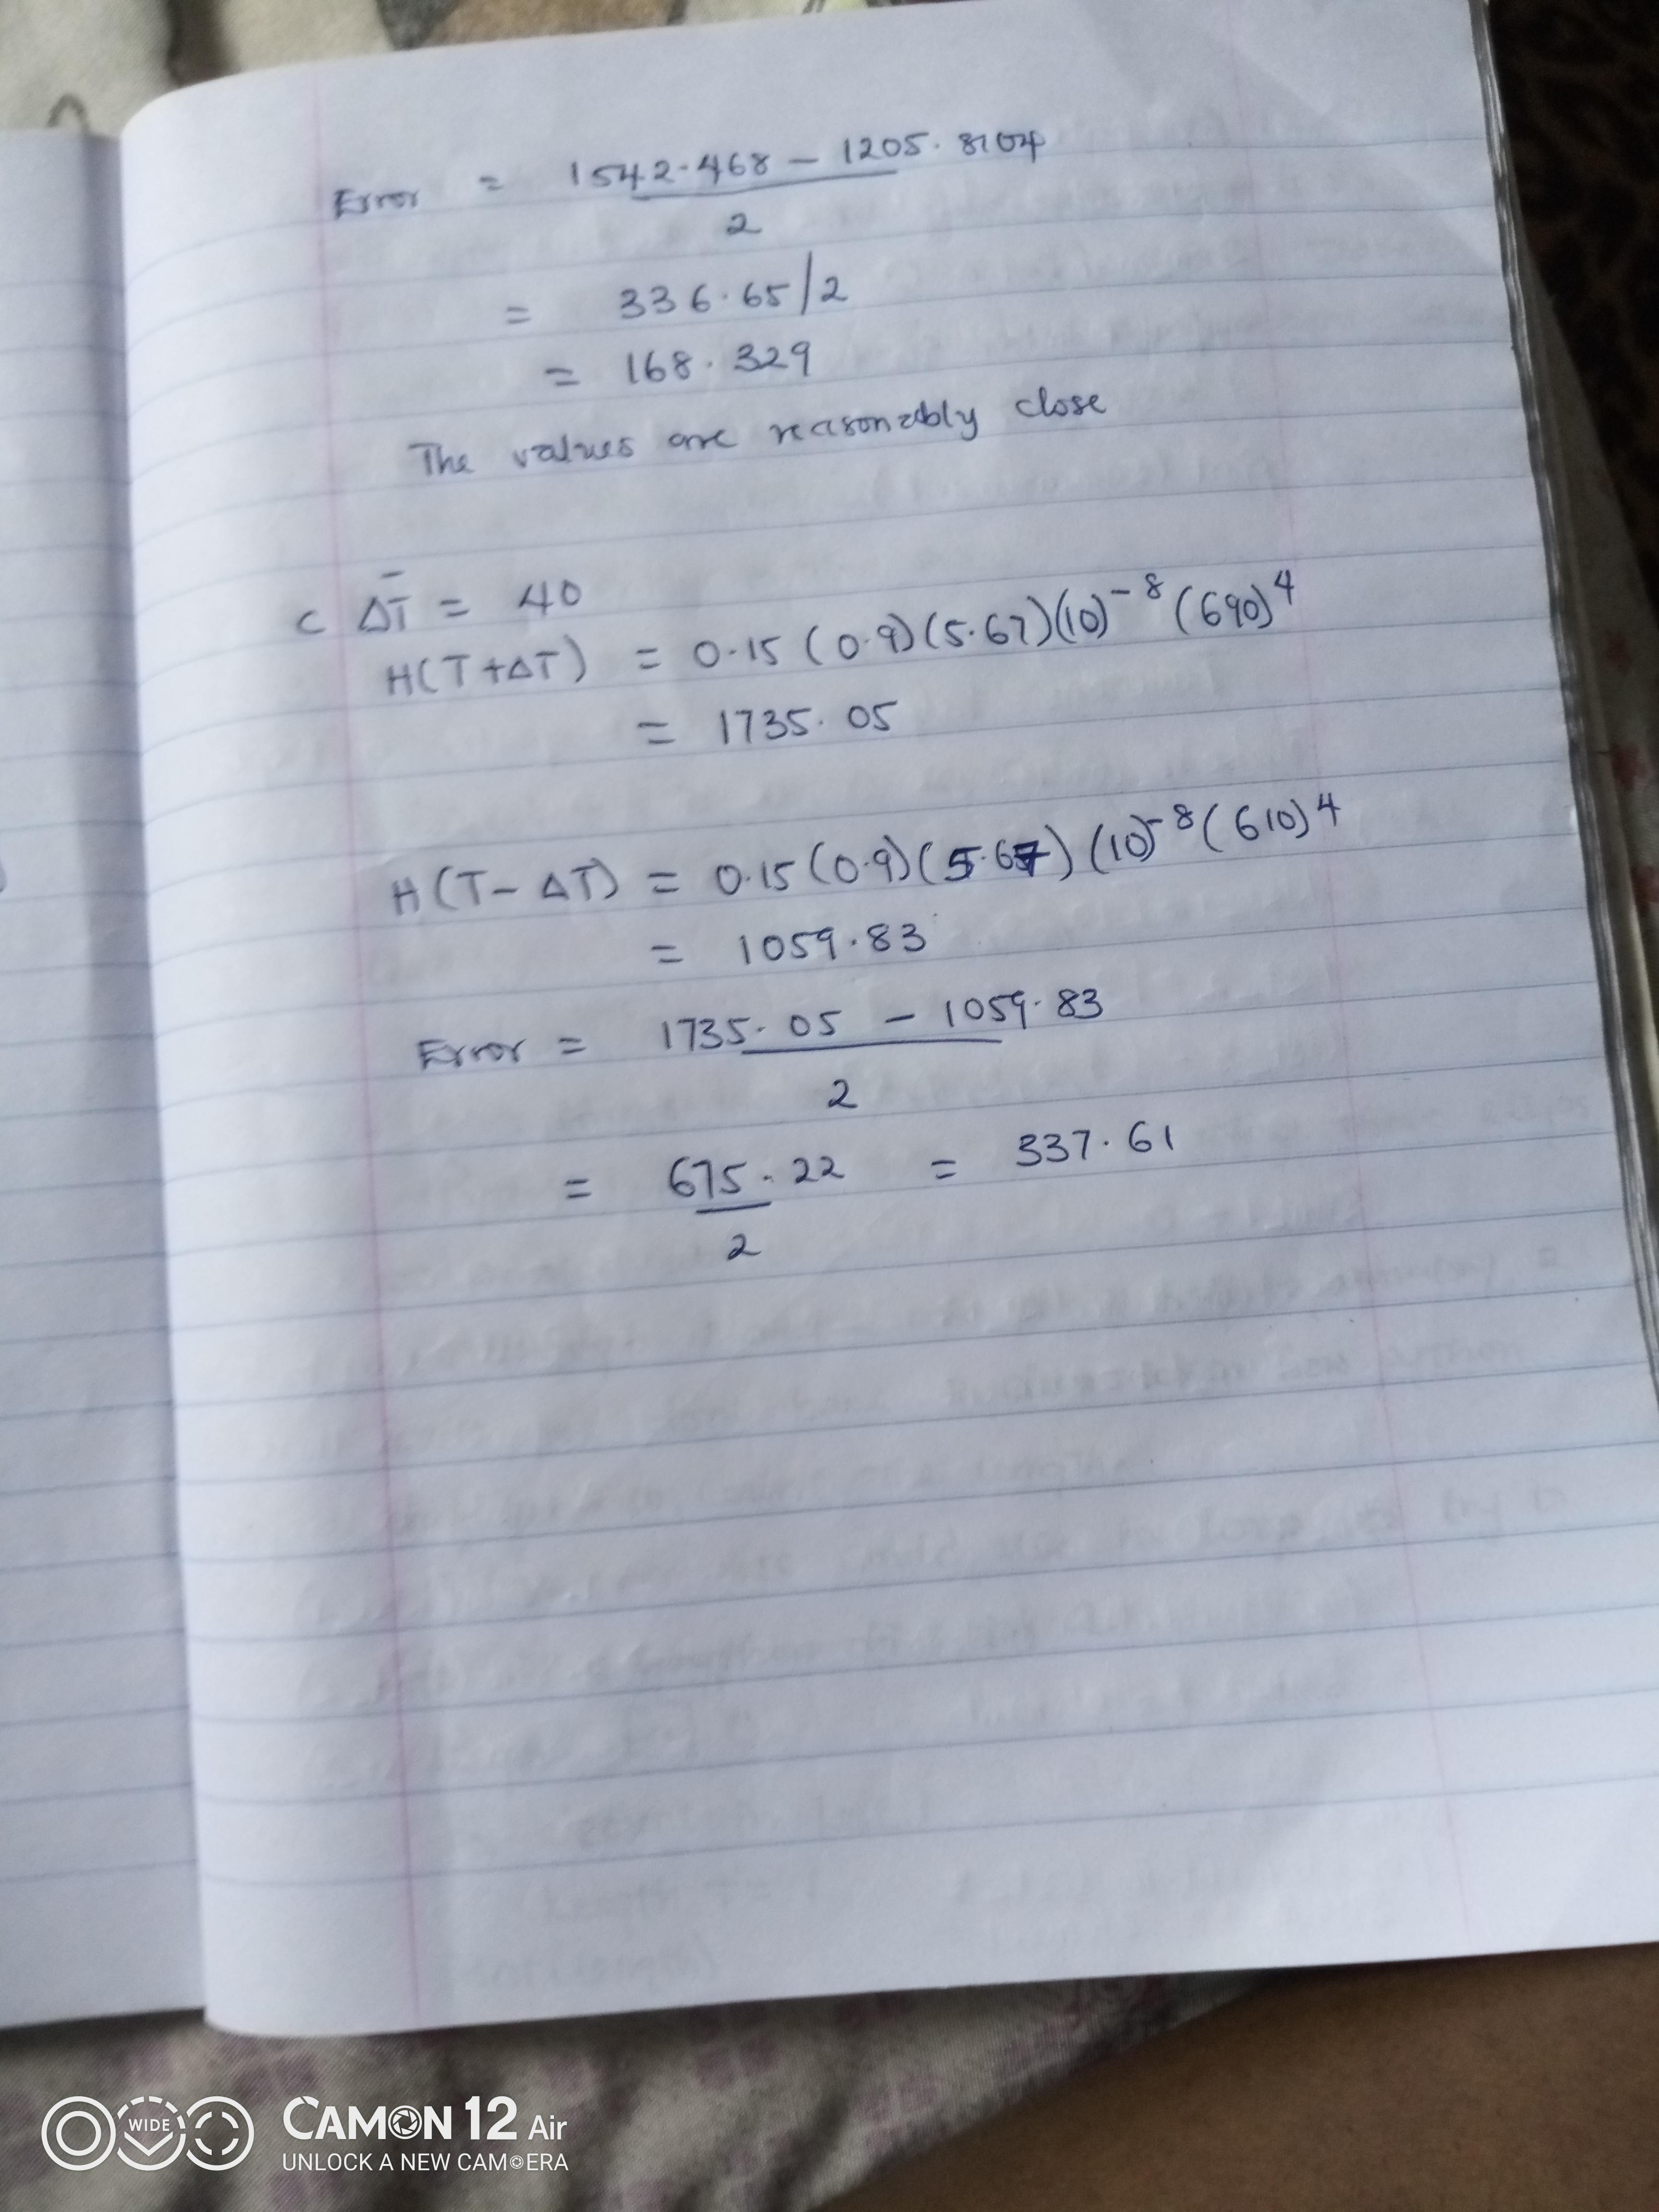 Error = 1542.468 - 1205.8104
2
= 336.65/2
= 168.329
The values are reasonably close
C ΔT̄ = 40
H(T+ΔT) = 0.15 (0.9)(5.67)(10)⁻⁸ (690)⁴
= 1735.05
H(T- ΔT) = 0.15(0.9)(5.67) (10)⁻⁸ (610)⁴
= 1059.83
Error = 1735.05 - 1059.83
2
= 675.22 = 337.61
2
WIDE CAMON 12 Air
UNLOCK A NEW CAMERA